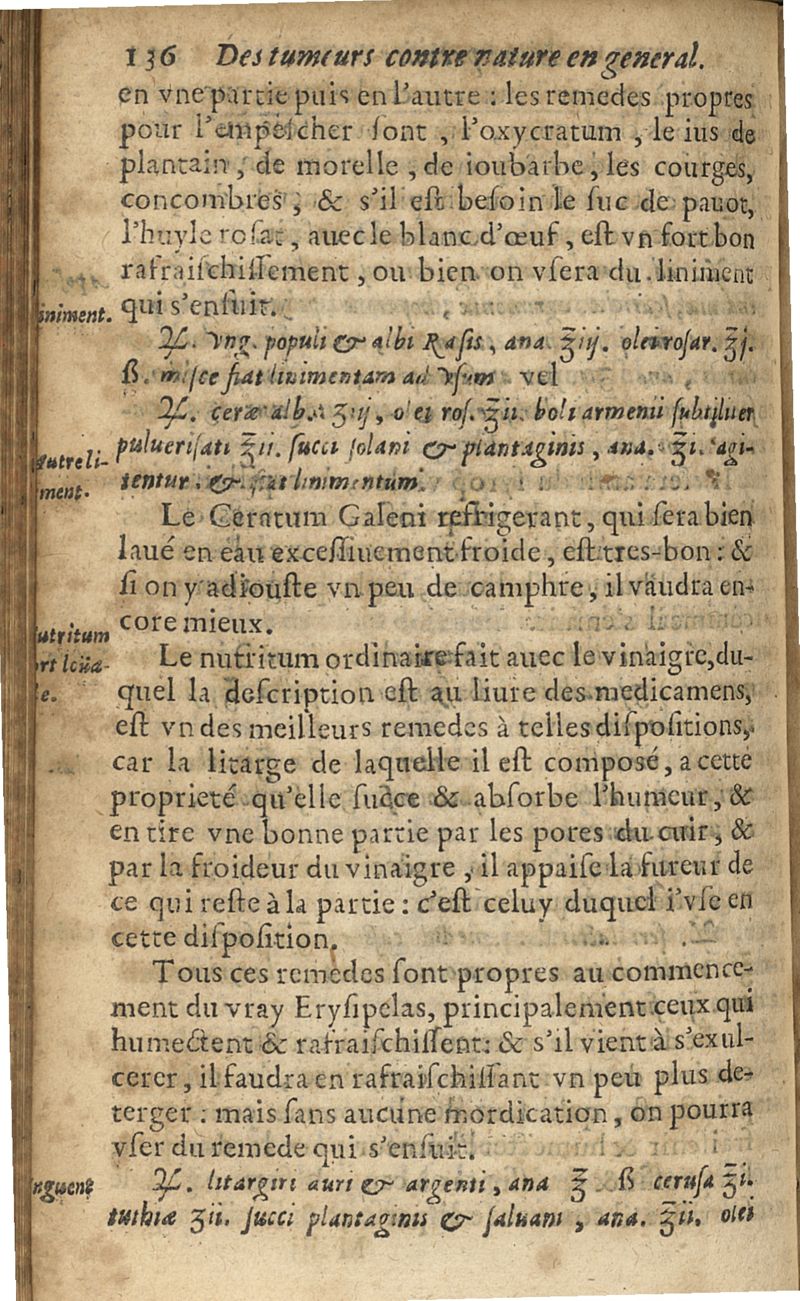 136 Des tumeurs contre nature en general.
en vne partie puis en l'autre : les remedes propres
pour l'empéscher ſont , l'oxycratum , le ius de
plantain , de morelle , de ioubarbe , les courges,
concombres , & s'il eſt beſoin le ſuc de pauot,
l'huyle roſat , auec le blanc d'œuf , eſt vn fort bon
rafraiſchiſſement , ou bien on vſera du liniment
iniment. qui s'enſuit.
℞. vng. populi & albi Raſis , ana ℥iij. olei roſar. ℥j.
ß. miſce fiat linimentam ad vſum vel
℞. ceræ alb. ʒiij, olei roſ. ℥ii. boli armenii ſubtiluer
Autre li- pulueriſati ℥ii. ſucci ſolani & plantaginis , ana. ℥i. agi-
ment. tentur . & fiat linimentum.
Le Ceratum Galeni refrigerant, qui ſera bien
laué en eau exceſſiuement froide , eſt tres-bon : &
ſi on y adiouſte vn peu de camphre, il vaudra en-
utritum core mieux.
Le nutritum ordinaire fait auec le vinaigre, du-
quel la deſcription eſt au liure des medicamens,
eſt vn des meilleurs remedes à telles diſpoſitions,
car la litarge de laquelle il eſt compoſé, a cette
proprieté qu'elle ſucce & abſorbe l'humeur, &
en tire vne bonne partie par les pores du cuir, &
par la froideur du vinaigre , il appaiſe la fureur de
ce qui reſte à la partie : c'eſt celuy duquel i'vſe en
cette diſpoſition.
Tous ces remedes ſont propres au commence-
ment du vray Eryſipelas, principalement ceux qui
humectent & rafraiſchiſſent: & s'il vient à s'exul-
cerer , il faudra en rafraiſchiſſant vn peu plus de-
terger : mais ſans aucune mordication , on pourra
vſer du remede qui s'enſuit.
nguent ℞. litargiri auri & argenti , ana ℥ ß ceruſa ℥i.
tuthiæ ʒii. ſucci plantaginis & ſaluani , ana. ℥ii. olei